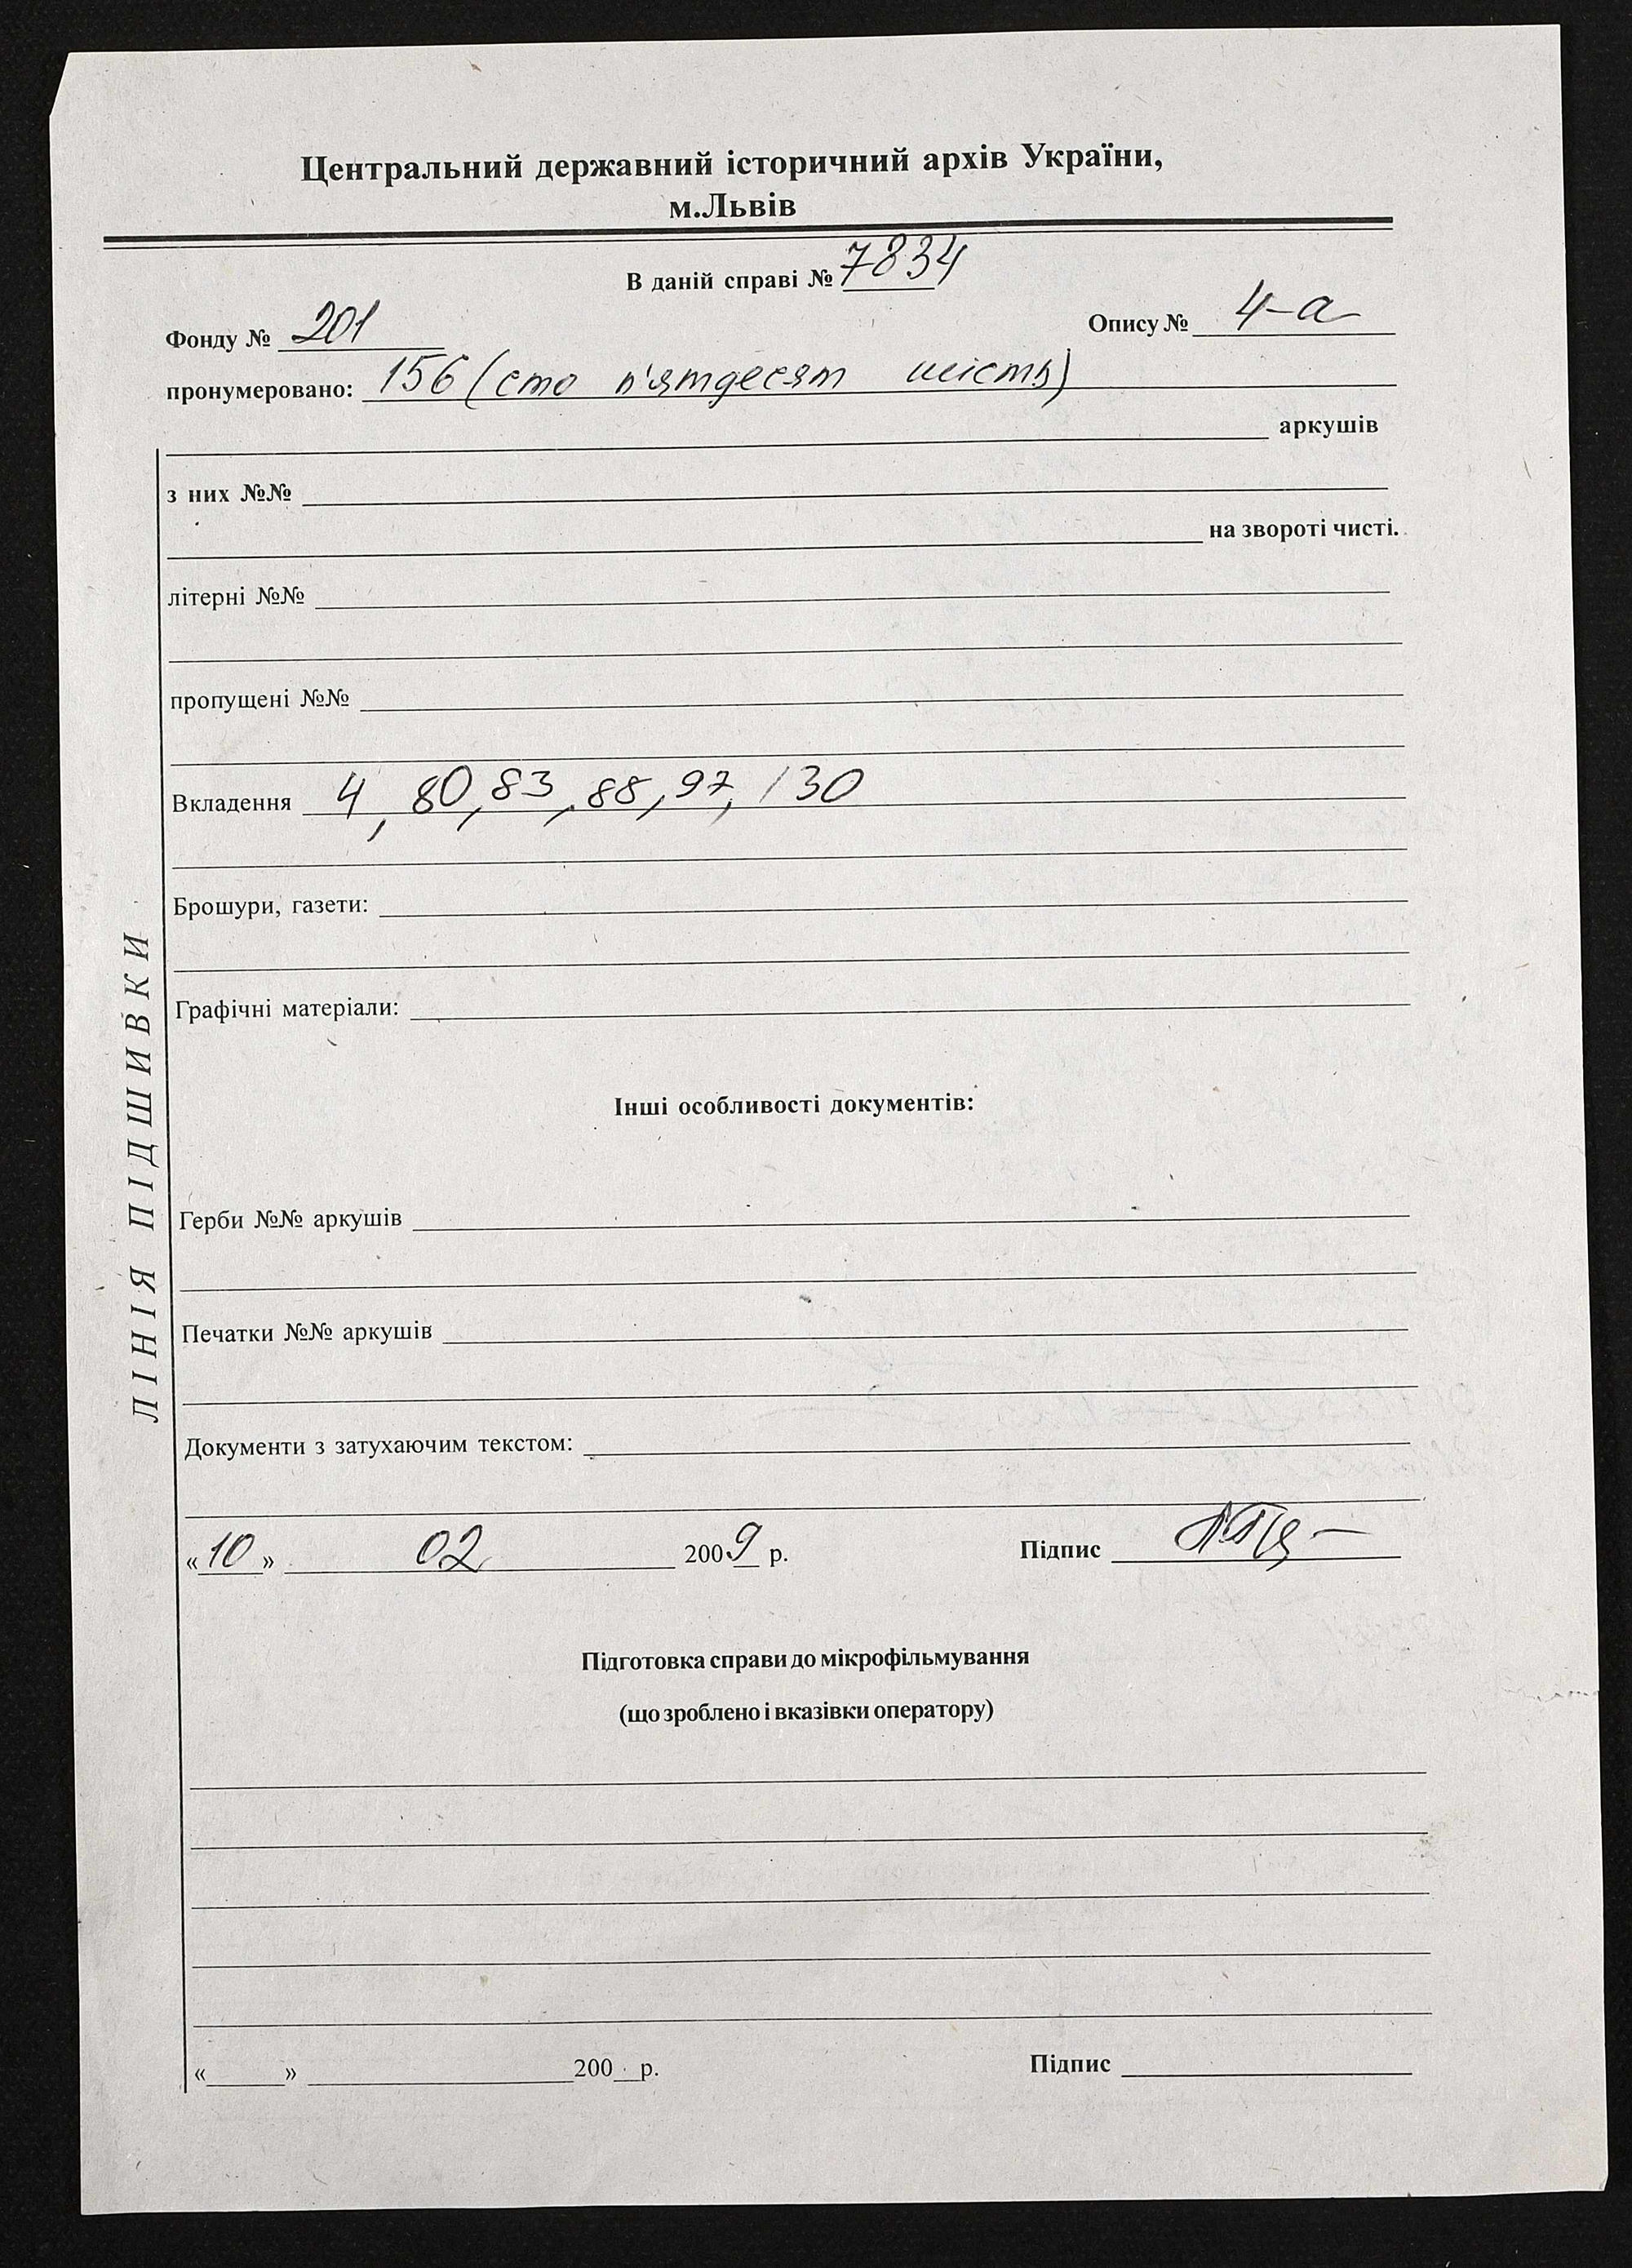 Центральний державний історичний архів України,
м.Львів
В даній справі № 7834
Фонду № 201 Опису № 4-а
пронумеровано: 156 (сто п'ятдесят шість)
аркушів
з них №№
на звороті чисті.
літерні №№
пропущені №№
Вкладення 4, 80, 83, 88, 97, 130
Брошури, газети:
Графічні матеріали:
Інші особливості документів:
Герби №№ аркушів
Печатки №№ аркушів
Документи з затухаючим текстом:
«10» 02 2009 р. Підпис
Підготовка справи до мікрофільмування
(що зроблено і вказівки оператору)
«______» 200__р. Підпис
ЛІНІЯ ПІДШИВКИ